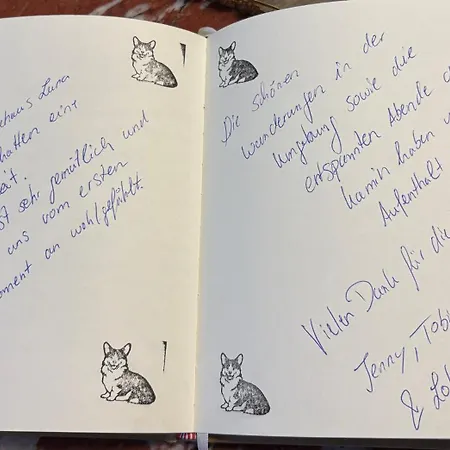 haus Luna
hatten eine
eit.
st sehr gemütlich und
uns vom ersten
oment an wohlgefühlt.
Die schönen
Wanderungen in der
Umgebung sowie die
entspannten Abende a
Kamin haben u
Aufenthalt
Vielen Dank für die
Jenny, Tobi
& Lo